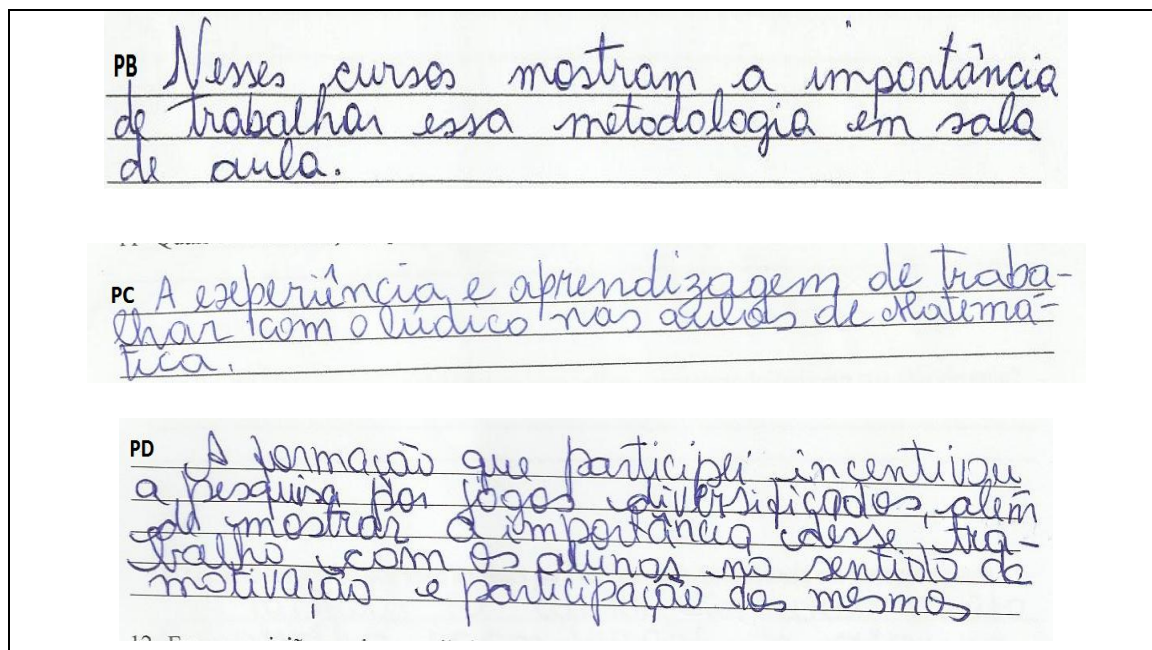 PB Nesses cursos mostram a importância
de trabalhar essa metodologia em sala
de aula.
PC A experiência e aprendizagem de traba-
lhar com o lúdico nas aulas de Matemá-
tica.
PD A formação que participei incentivou
a pesquisa por jogos diversificados, além
de mostrar a importância desse tra-
balho com os alunos no sentido da
motivação e participação dos mesmos